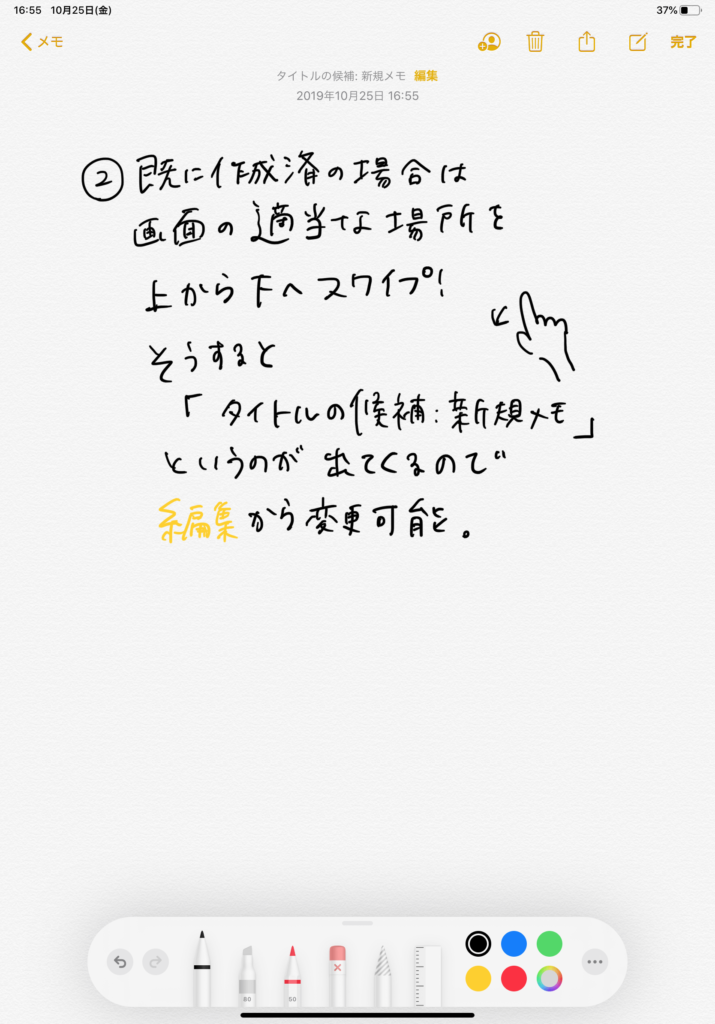 16:55 10月25日(金) 37%
メモ 完了
タイトルの候補: 新規メモ 編集
2019年10月25日 16:55
② 既に作成済の場合は
画面の適当な場所を
上から下へスワイプ!
そうすると
「タイトルの候補:新規メモ」
というのが出てくるので
編集から変更可能。
80 50